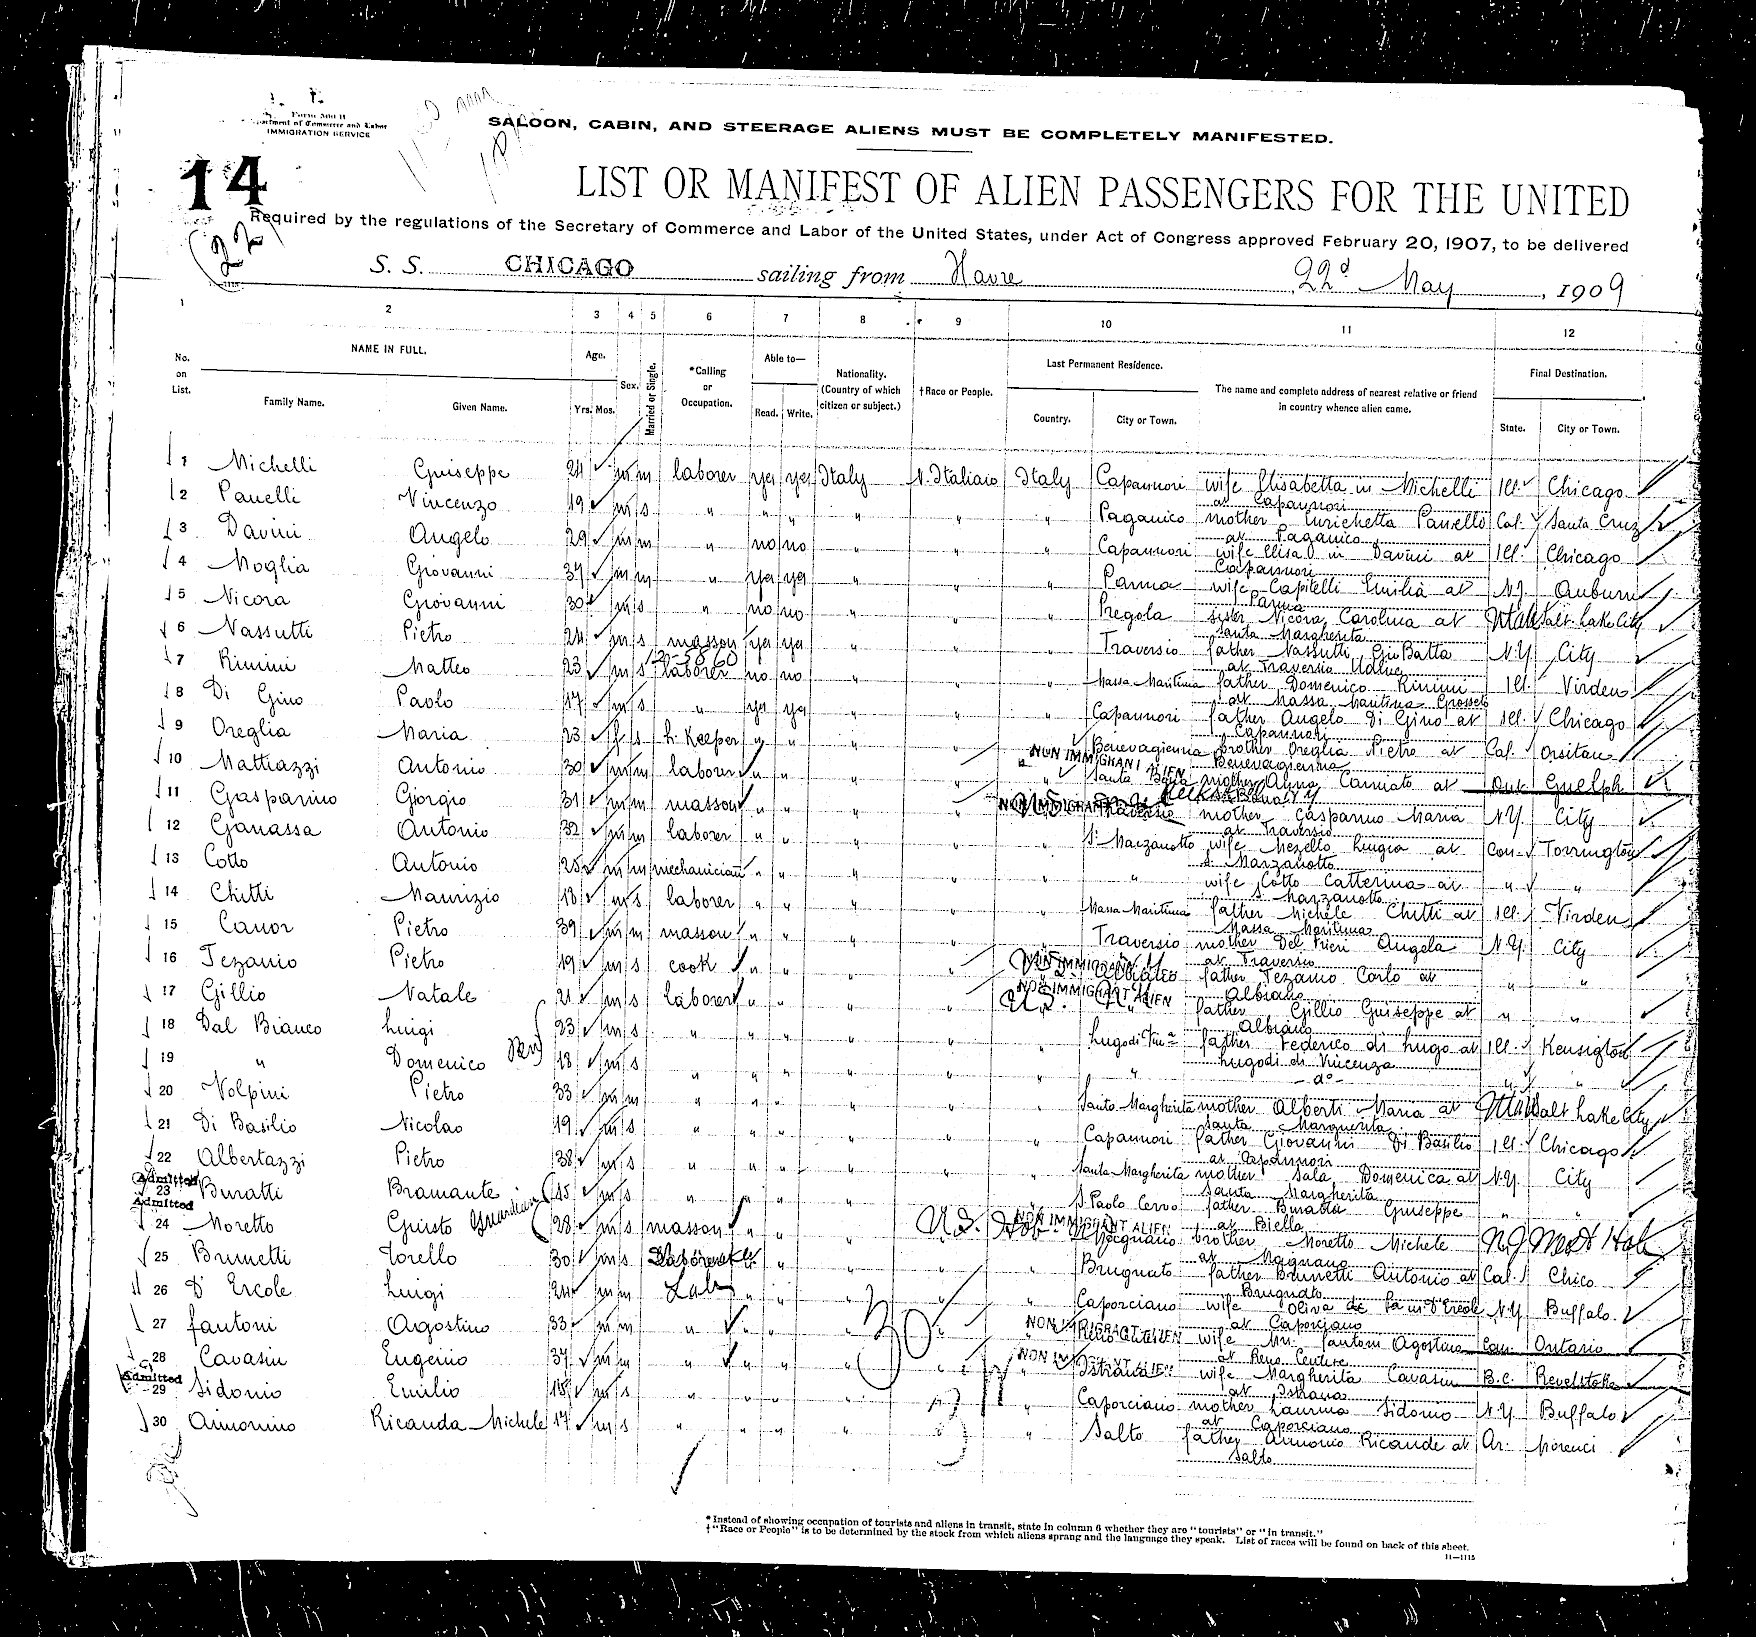 Form 500 B
Department of Commerce and Labor
IMMIGRATION SERVICE
SALOON, CABIN, AND STEERAGE ALIENS MUST BE COMPLETELY MANIFESTED.
14
LIST OR MANIFEST OF ALIEN PASSENGERS FOR THE UNITED
Required by the regulations of the Secretary of Commerce and Labor of the United States, under Act of Congress approved February 20, 1907, to be delivered
(22)
S. S. CHICAGO sailing from Havre 22d May, 1909
1 2 3 4 5 6 7 8 9 10 11 12
No. on List. NAME IN FULL. Family Name. Given Name. Age. Yrs. Mos. Sex. Married or Single. *Calling or Occupation. Able to— Read. Write. Nationality. (Country of which citizen or subject.) †Race or People. Last Permanent Residence. Country. City or Town. The name and complete address of nearest relative or friend in country whence alien came. Final Destination. State. City or Town.
1 Michelli Guiseppe 24 m m laborer yes yes Italy N. Italiaio Italy Capannori wife Elisabetta in Michelli at Capannori Ill. Chicago
2 Panelli Vincenzo 19 m s " " " " " " Paganico mother Enrichetta Panello at Paganico Cal. Santa Cruz
3 Davini Angelo 29 m m " no no " " " Capannori wife Elisa in Davini at Capannori Ill. Chicago
4 Moglia Giovanni 37 m m " yes yes " " " Parma wife Capitelli Emilia at Parma N.J. Auburn
5 Nicora Giovanni 30 m s " no no " " " Pregola sister Nicora Carolina at Santa Margherita Utah Salt Lake City
6 Nassutti Pietro 24 m s masson yes yes " " " Traversio father Nassutti Gio Batta at Traversio Udine N.Y. City
7 Rimini Matteo 23 m s laborer no no " " " Massa Maritima father Domenico Rimini at Massa Maritima Grosseto Ill. Virden
8 Di Gino Paolo 17 m s " yes yes " " " Capannori father Angelo Di Gino at Capannori Ill. Chicago
9 Oreglia Maria 23 f s h. Keeper " " " " " Benevagienna brother Oreglia Pietro at Benevagienna Cal.
10 Mattiazzi Antonio 30 m m laborer " " " " NON IMMIGRANT ALIEN Santa mother Anna at Ont. Guelph
11 Gasparino Giorgio 31 m m masson " " " " NON IMMIGRANT Traversio mother Gasparino Maria at Traversio N.Y. City
12 Ganassa Antonio 32 m m laborer " " " " " S. Marzanotto wife Mezello Luigia at S. Marzanotto Con. Torrington
13 Cotto Antonio 25 m m mechanician " " " " " " wife Cotto Catterina at S. Marzanotto " "
14 Chitti Maurizio 18 m s laborer " " " " " Massa Maritima father Michele Chitti at Massa Maritima Ill. Virden
15 Canor Pietro 39 m m masson " " " " " Traversio mother Del Frieri Angela at Traversio N.Y. City
16 Tezanio Pietro 19 m s cook " " " " NON IMMIGRANT father Tezanio Carlo at Albiano " "
17 Gillio Natale 21 m s laborer " " " " U.S. NON IMMIGRANT ALIEN father Gillio Guiseppe at Albiano " "
18 Dal Bianco Luigi 23 m s " " " " " " Lugodi father Federico di Lugo at Lugodi di Vincenza Ill. Kensigton
19 " Domenico 18 m s " " " " " " " - do - " "
20 Volpini Pietro 33 m m " " " " " " Santa Margherita mother Alberti Maria at Santa Marguerita Utah Salt Lake City
21 Di Basilio Nicolao 19 m s " " " " " " Capannori father Giovanni Di Basilio at Capannori Ill. Chicago
22 Albertazzi Pietro 38 m s " " " " " " Santa Margherita mother Sala Domenica at Santa Margherita N.Y. City
Admitted
23 Buratti Bramante 15 m s " " " " " S. Paolo Cervo father Buratti Guiseppe at Biella " "
Admitted
24 Moretto Giusto Guardian 28 m s masson " " " U.S. NON IMMIGRANT ALIEN Magnano brother Moretto Michele at Magnano N.J.
25 Brunetti Torello 30 m s Laborer " " " " " Brugnato father Brunetti Antonio at Brugnato Cal. Chico
26 D'Ercole Luigi 24 m m Lab " " " " " Caporciano wife Oliva de Pa in D'Ercole at Caporciano N.Y. Buffalo
27 Fantoni Agostino 33 m m " " " " NON IMMIGRANT ALIEN wife Mri. Fantoni Agostino at Reno Centese Can. Ontario
28 Cavasin Eugenio 37 m m " " " " NON IMMIGRANT ALIEN Istrana wife Margherita Cavasin at Istrana B.C. Revelstoke
Admitted
29 Sidonio Emilio 18 m s " " " " " Caporciano mother Laurina Sidonio at Caporciano N.Y. Buffalo
30 Aimonino Ricauda Michele 17 m s " " " " " Salto father Aimonio Ricaude at Salto Ar. Morenci
*Instead of showing occupation of tourists and aliens in transit, state in column 6 whether they are "tourists" or "in transit."
†"Race or People" is to be determined by the stock from which aliens sprang and the language they speak. List of races will be found on back of this sheet.
11—1115